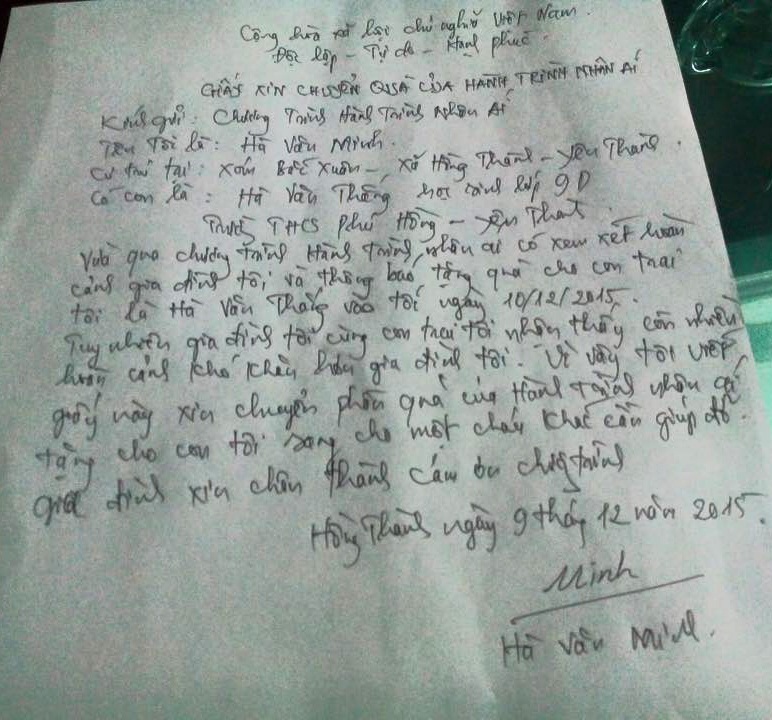 Cộng hòa xã hội chủ nghĩa Việt Nam.
Độc lập - Tự do - Hạnh phúc.
GIẤY XIN CHUYỂN QUÀ CỦA HÀNH TRÌNH NHÂN ÁI
Kính gửi: Chương Trình Hành Trình Nhân Ái
Tên Tôi là: Hà Văn Minh.
Cư trú tại: xóm Bắc Xuân - xã Hồng Thành - Yên Thành.
Có con là: Hà Văn Thắng học sinh lớp 9D
Trường THCS Phú Hồng - Yên Thành.
Vừa qua chương trình Hành Trình nhân ái có xem xét hoàn
cảnh gia đình tôi, và thông báo tặng quà cho con trai
tôi là Hà Văn Thắng vào tối ngày 10/12/2015.
Tuy nhiên gia đình tôi cùng con trai tôi nhận thấy còn nhiều
hoàn cảnh khó khăn hơn gia đình tôi. Vì vậy tôi viết
giấy này xin chuyển phần quà của Hành trình nhân ái
tặng cho con tôi sang cho một cháu khác cần giúp đỡ.
gia đình xin chân thành cám ơn chương trình
Hồng Thành ngày 9 tháng 12 năm 2015.
Minh
Hà Văn Minh.